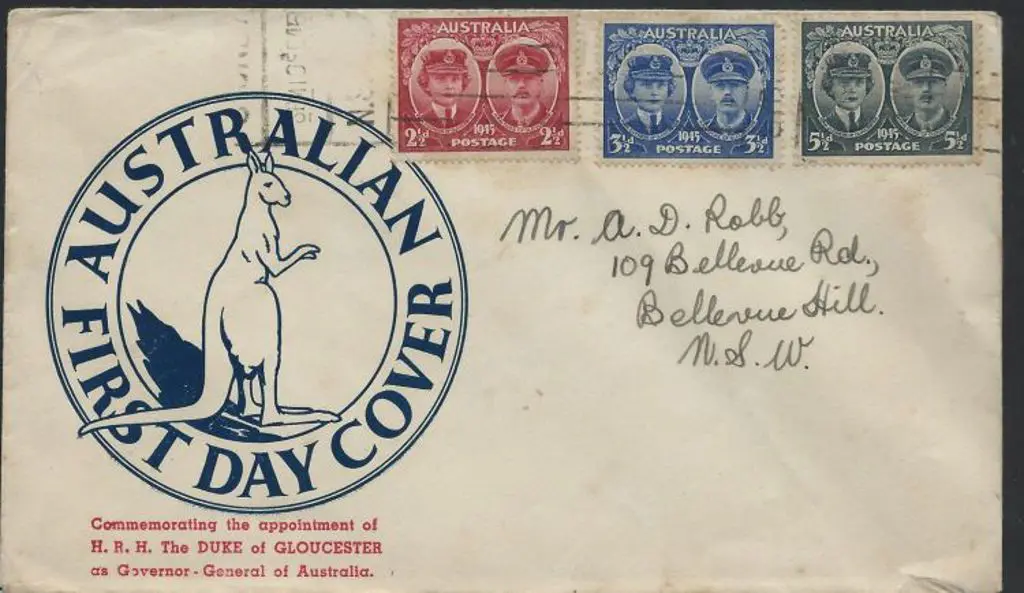 AUSTRALIA
2½d 1945 2½d
POSTAGE
AUSTRALIA
3½d 1945 3½d
POSTAGE
AUSTRALIA
5½d 1945 5½d
POSTAGE
AUSTRALIAN
FIRST DAY COVER
Mr. A. D. Robb,
109 Bellevue Rd.,
Bellevue Hill.
N. S. W.
Commemorating the appointment of
H. R. H. The DUKE of GLOUCESTER
as Governor-General of Australia.